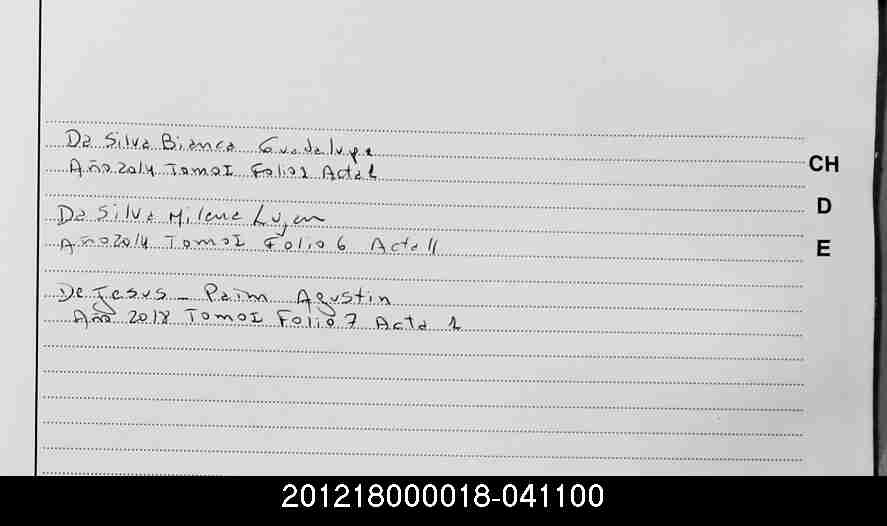 Da Silva Bianca Guadalupe
Año 2014 Tomo I Folio 1 Acta 1
CH
D
Da Silva Milena Lujan
Año 2014 Tomo I Folio 6 Acta 11
E
De Jesus - Paim Agustin
Año 2018 Tomo I Folio 7 Acta 1
201218000018-041100